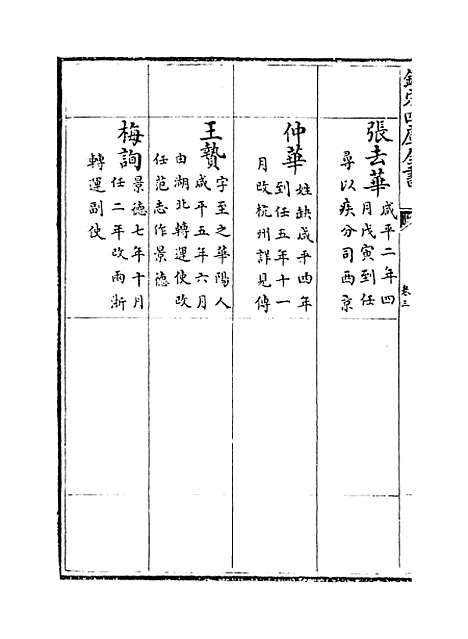 欽定四庫全書
卷三
張去華
咸平二年四
月戊寅到任
尋以疾分司西京
仲華
姓缺咸平四年
到任五年十一
月改杭州詳見傳
王贄
字至之華陽人
咸平五年六月
由湖北轉運使改
任范志作景德
梅詢
景德七年十月
任二年改兩浙
轉運副使